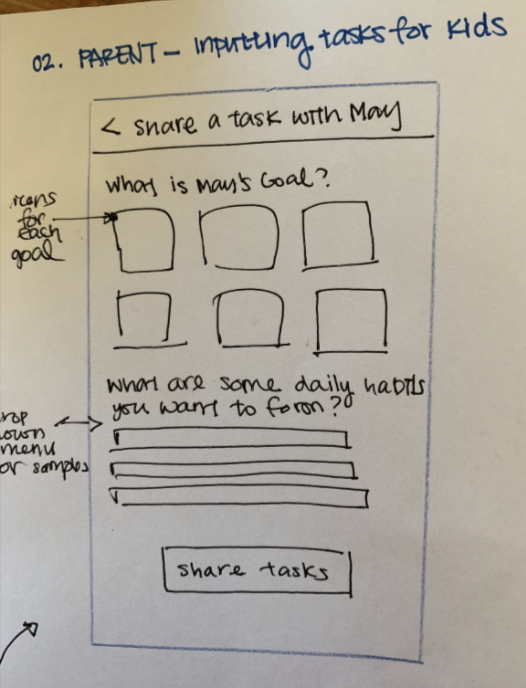 02. PARENT – inputting tasks for kids
< share a task with May
What is May's Goal?
icons
for
each
goal
What are some daily habits
you want to foron?
rop
own
menu
or samples
share tasks